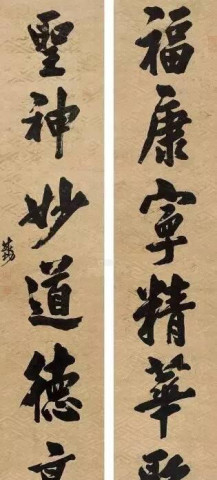 福康寧精華
聖神妙道德